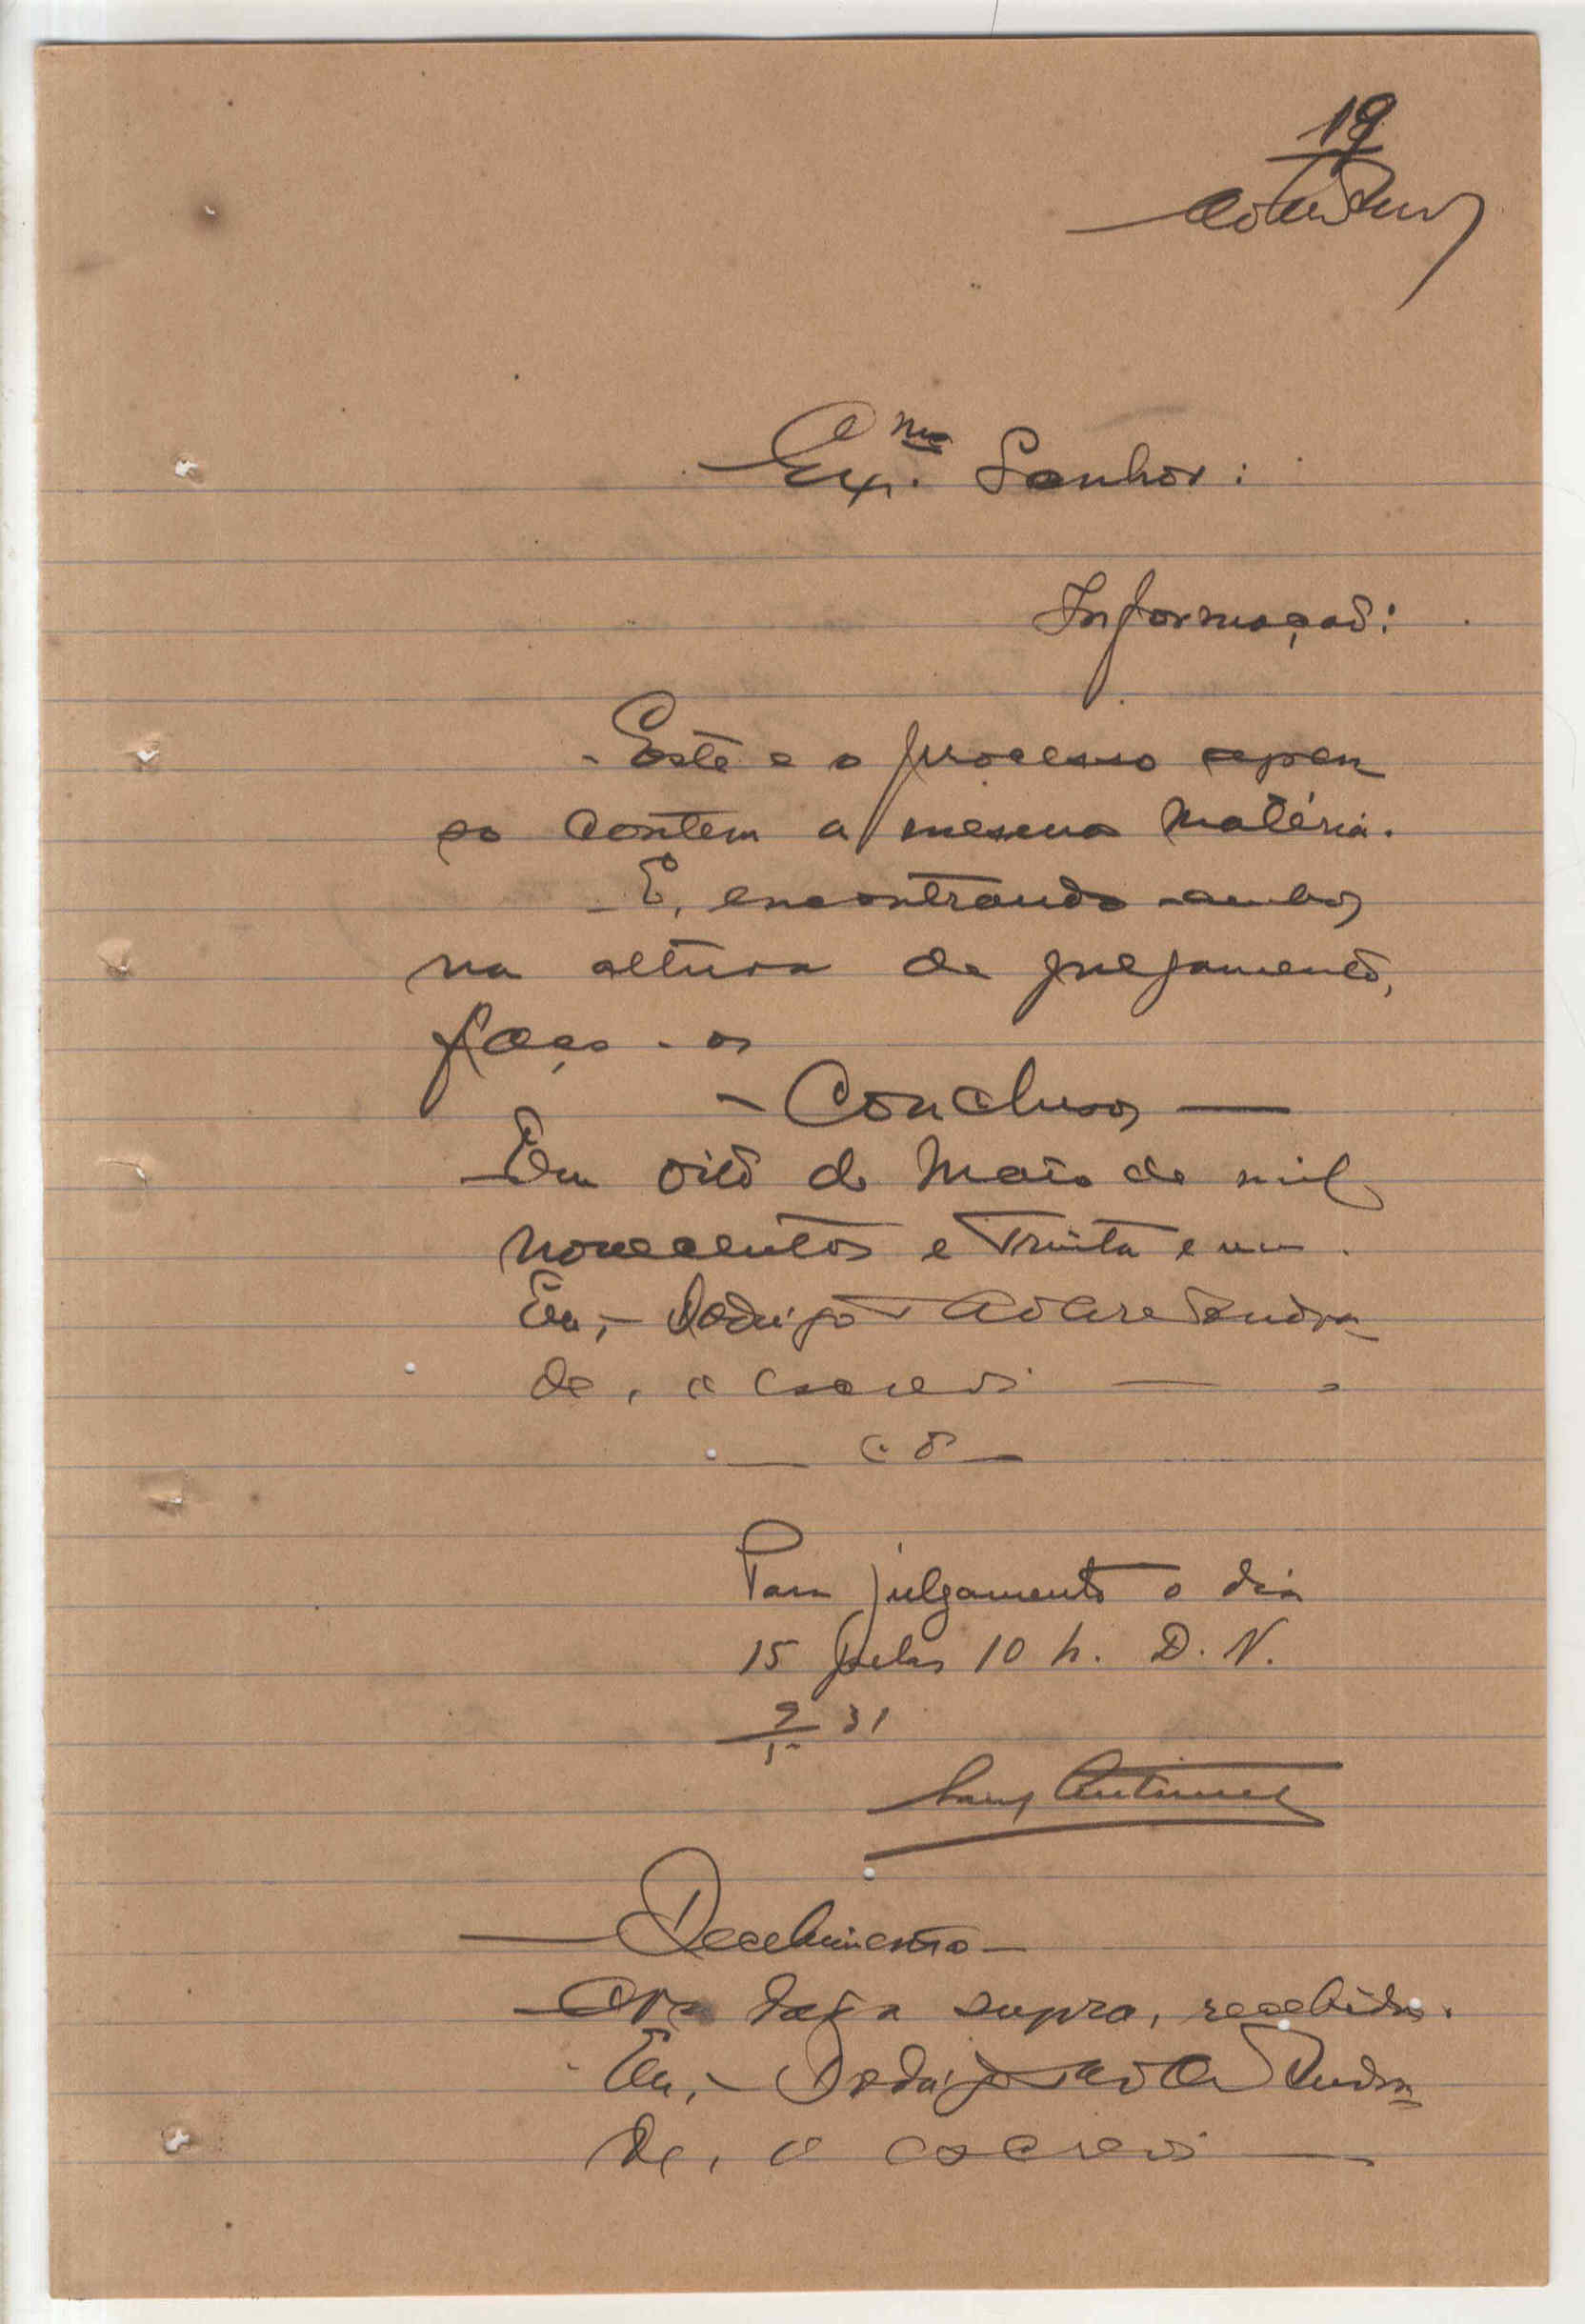 19
Exmo. Senhor:
Informação:
- Este e o processo apen
so contem a mesma matéria.
- E, encontrando ambos
na altura de julgamento,
faço-os
- Conclusos -
Em oito de Maio de mil
novecentos e trinta e um.
Eu, - Rodrigo Andra
de, o escrevi -
Para julgamento o dia
15 pelas 10 h. D. N.
9/5 31
Antunes
- Recebimento -
Na data supra, recebidos.
Eu, - Rodrigo Andra
de, o escrevi -